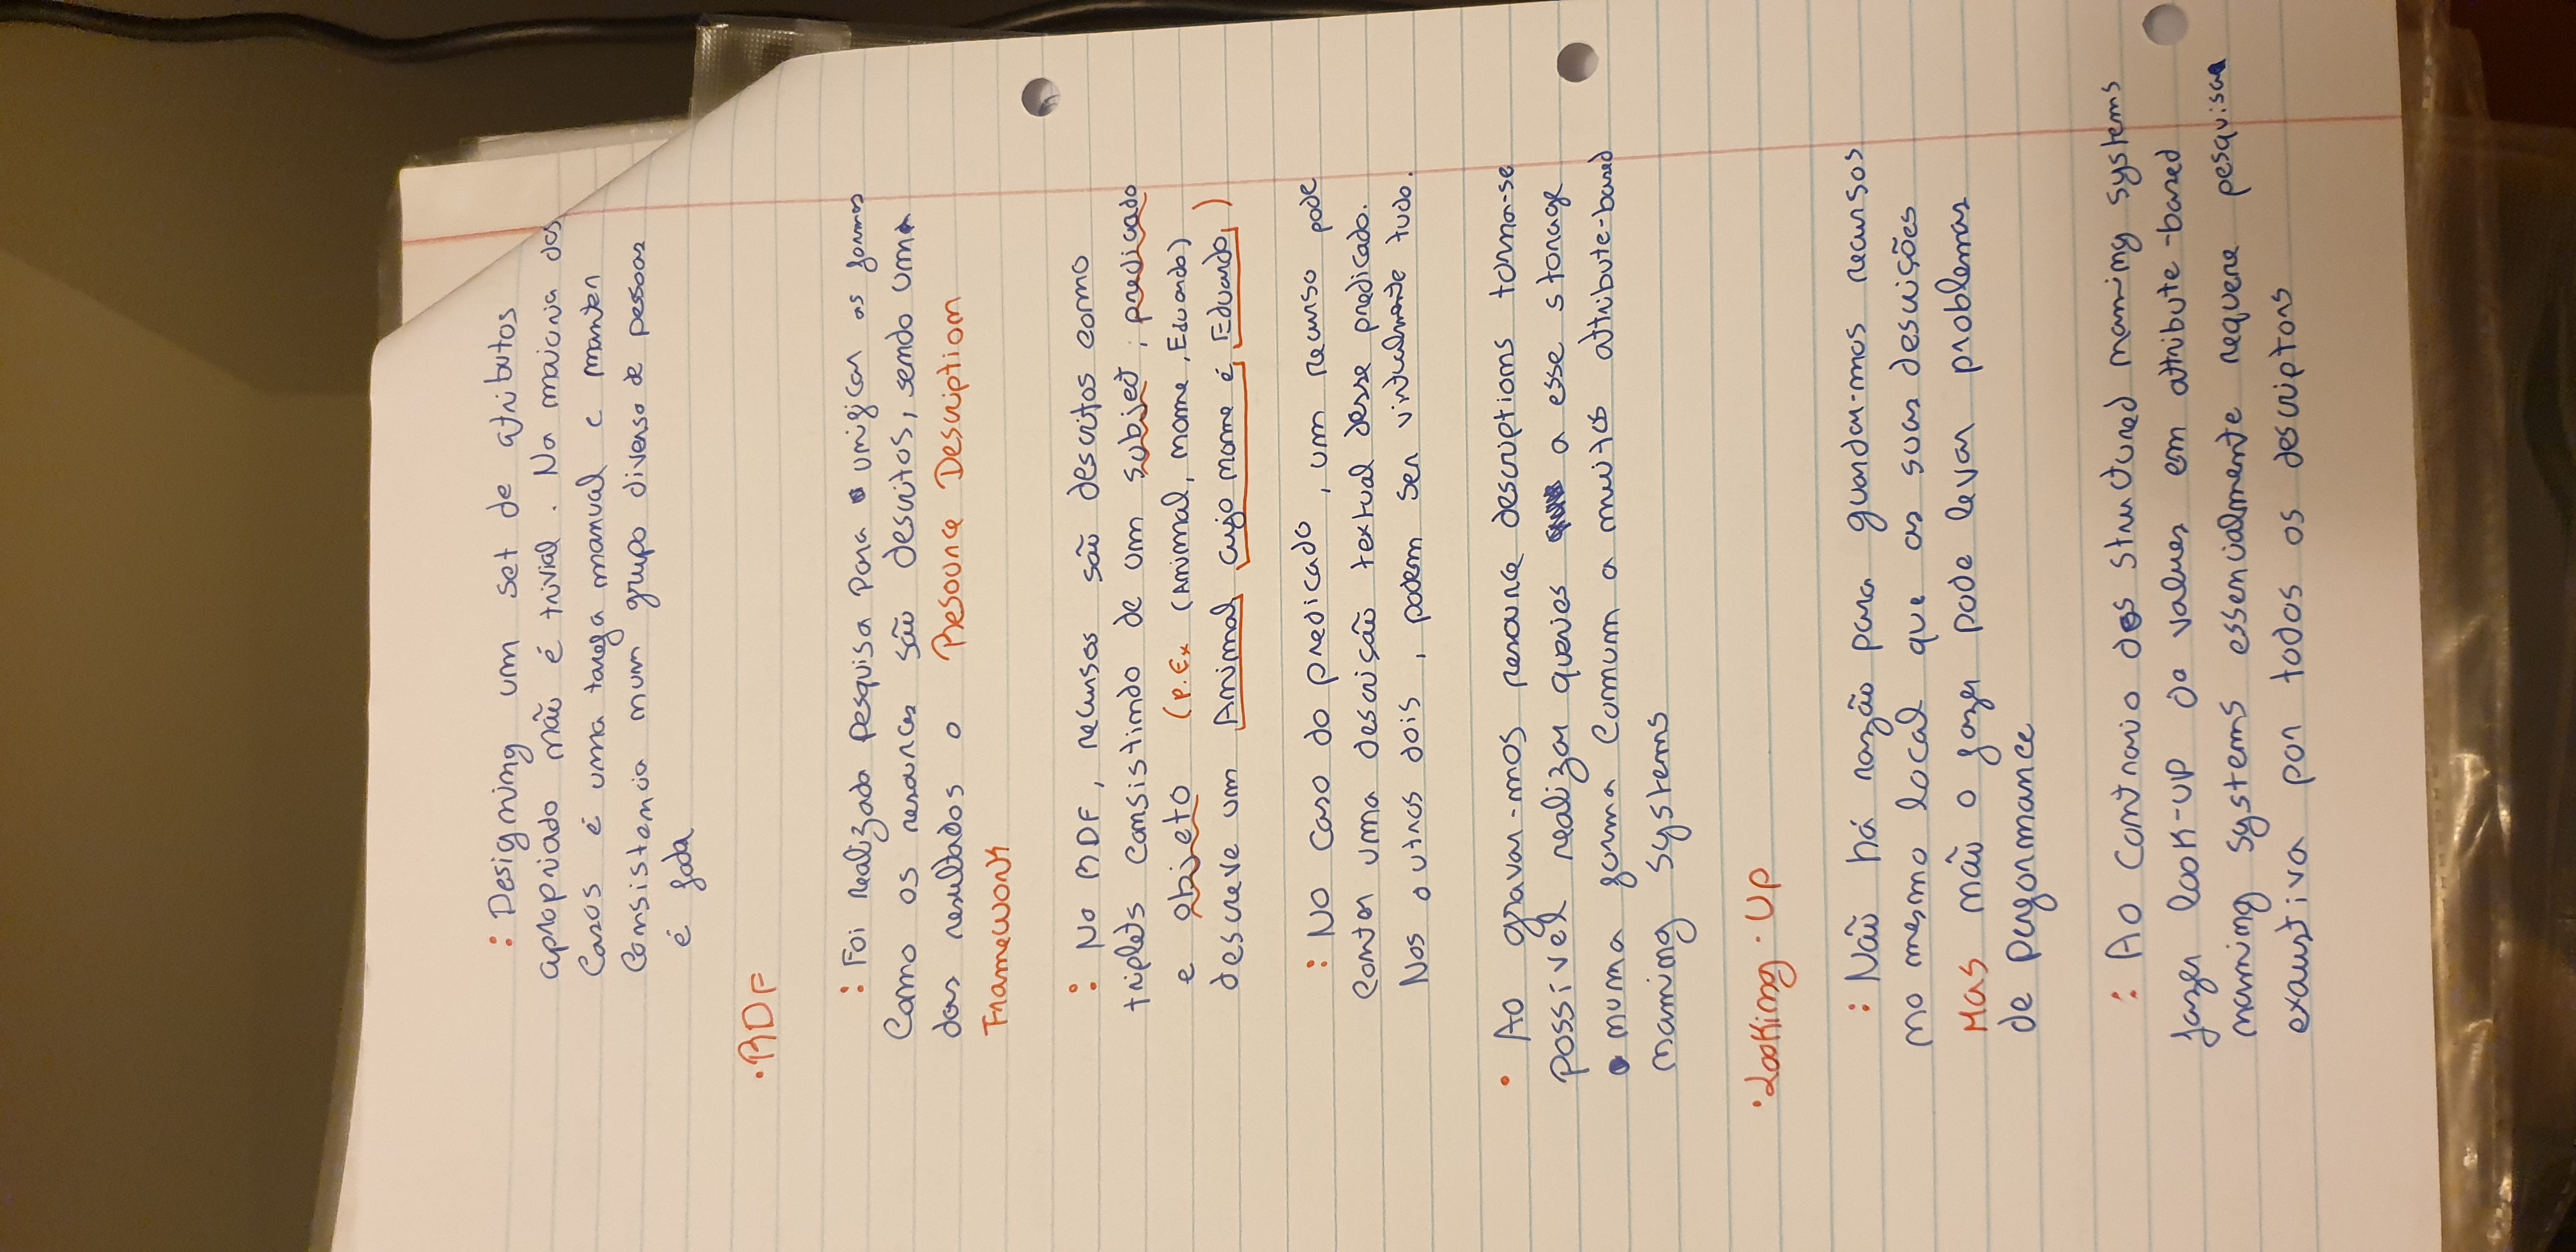 : Designing um set de atributos
apropriado não é trivial. Na maioria dos
Casos é uma tarefa manual e manter
Consistencia num grupo diverso de pessoas
é foda
• RDF
: Foi realizada pesquisa para unificar as formas
Como os resources são descritos, sendo um
dos resultados o Resource Description
Framework
: No RDF, recursos são descritos como
triplets consistindo de um subject, predicado
e objeto (P.Ex (Animal, nome, Eduardo)
descreve um Animal cujo nome é Eduardo)
: No caso do predicado, um recurso pode
conter uma descrição textual desse predicado.
Nos outros dois, podem ser virtualmente tudo.
• Ao gravar-mos resource descriptions torna-se
possível realizar queries a esse storage
numa forma comum a muitos attribute-based
naming systems
• Looking-Up
: Não há razão para guardar-mos recursos
no mesmo local que as suas descrições
MAS não o fazer pode levar problemas
de performance
: Ao Contrario dos structured naming systems
fazer look-up de values em attribute-based
naming systems essencialmente requere pesquisa
exaustiva por todos os descriptors